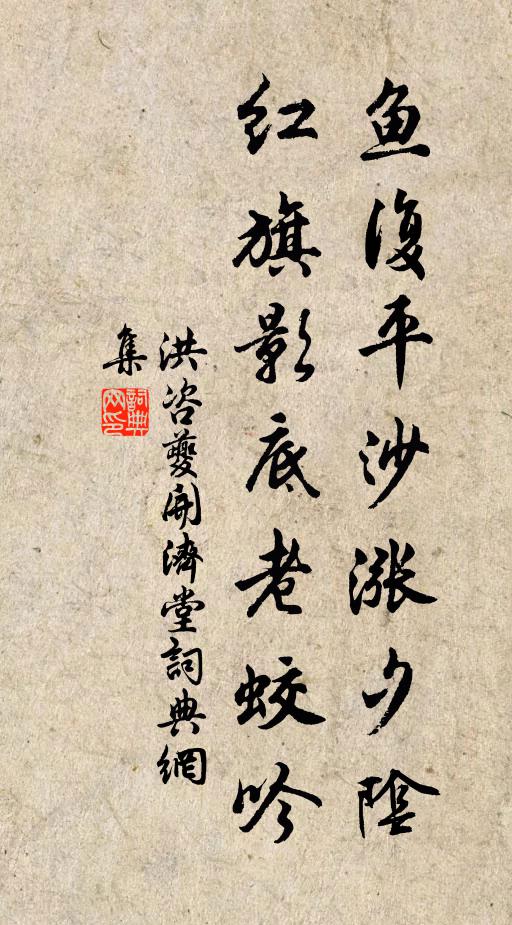 鱼復平沙漲夕陰
红旗影底老蛟吟
洪咨夔開濟堂詞典網
集
詞典网印